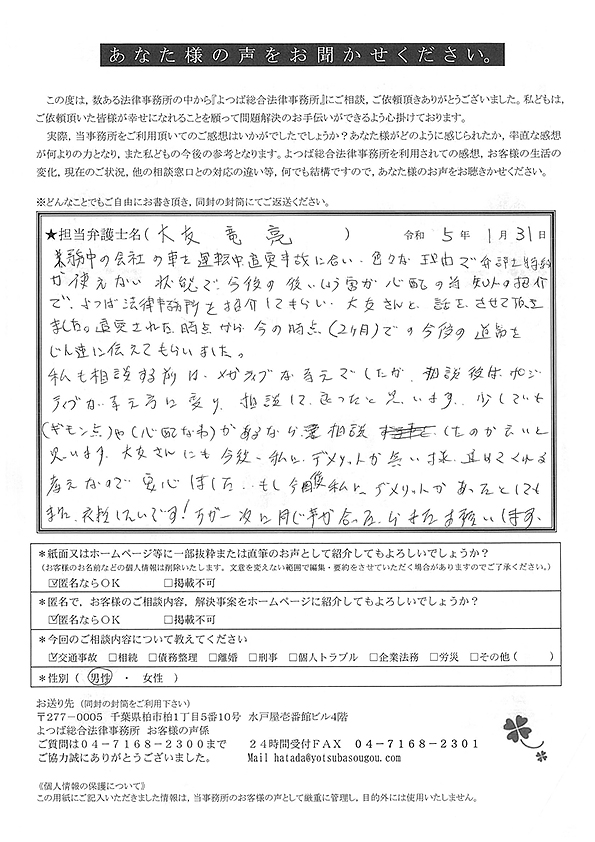 あなた様の声をお聞かせください。
この度は，数ある法律事務所の中から『よつば総合法律事務所』にご相談，ご依頼頂きありがとうございました。私どもは，
ご依頼頂いた皆様が幸せになれることを願って問題解決のお手伝いができるよう心掛けております。
実際，当事務所をご利用頂いてのご感想はいかがでしたでしょうか？あなた様がどのように感じられたか，率直な感想
が何よりの力となり，また私どもの今後の参考となります。よつば総合法律事務所を利用されての感想，お客様の生活の
変化，現在のご状況，他の相談窓口との対応の違い等，何でも結構ですので，あなた様のお声をお聴きかせください。
※どんなことでもご自由にお書き頂き，同封の封筒にてご返送ください。
★担当弁護士名（ 大友 竜亮 ） 令和 5年 1月 31日
業務中の会社の車を運転中追突事故に合い、色々な理由で弁護士特約
が使えない状態で今後の
心配の為知人の紹介
で、よつば法律事務所を紹介してもらい、大友さんと、話をさせて頂き
ました。追突された時点から今の時点（2ヶ月）での今後の
伝えてもらいました。
私も相談する前は、ネガティブな考えでしたが、相談後はポジ
ティブな考え方に変り、相談して良かったと思います。少しでも
（ギモン点）や（心配なわ）があるなら 相談 したのが良いと
思います。大友さんにも今後、私に、デメリットが無い様、進めてくれる
考えなので安心しました。もし今後私に、デメリットがあったとしても
また、依頼したいです！万が一次に同じ事が合ったらまたお願いします。
＊紙面又はホームページ等に一部抜粋または直筆のお声として紹介してもよろしいでしょうか？
（お客様のお名前などの個人情報は削除いたします。文意を変えない範囲で編集・要約をさせていただく場合がありますのでご了承ください。）
☑匿名ならＯＫ □掲載不可
＊匿名で，お客様のご相談内容，解決事案をホームページに紹介してもよろしいでしょうか？
☑匿名ならＯＫ □掲載不可
＊今回のご相談内容について教えてください
☑交通事故 □相続 □債務整理 □離婚 □刑事 □個人トラブル □企業法務 □労災 □その他（ ）
＊性別（ 男性 ・ 女性 ）
お送り先（同封の封筒をご利用下さい）
〒277－0005 千葉県柏市柏1丁目5番10号 水戸屋壱番館ビル4階
よつば総合法律事務所 お客様の声係
ご質問は０４－７１６８－２３００まで ２４時間受付ＦＡＸ ０４－７１６８－２３０１
ご協力誠にありがとうございました。 Mail hatada@yotsubasougou.com
《個人情報の保護について》
この用紙にご記入いただきました情報は，当事務所のお客様の声として厳重に管理し，目的外には使用いたしません。